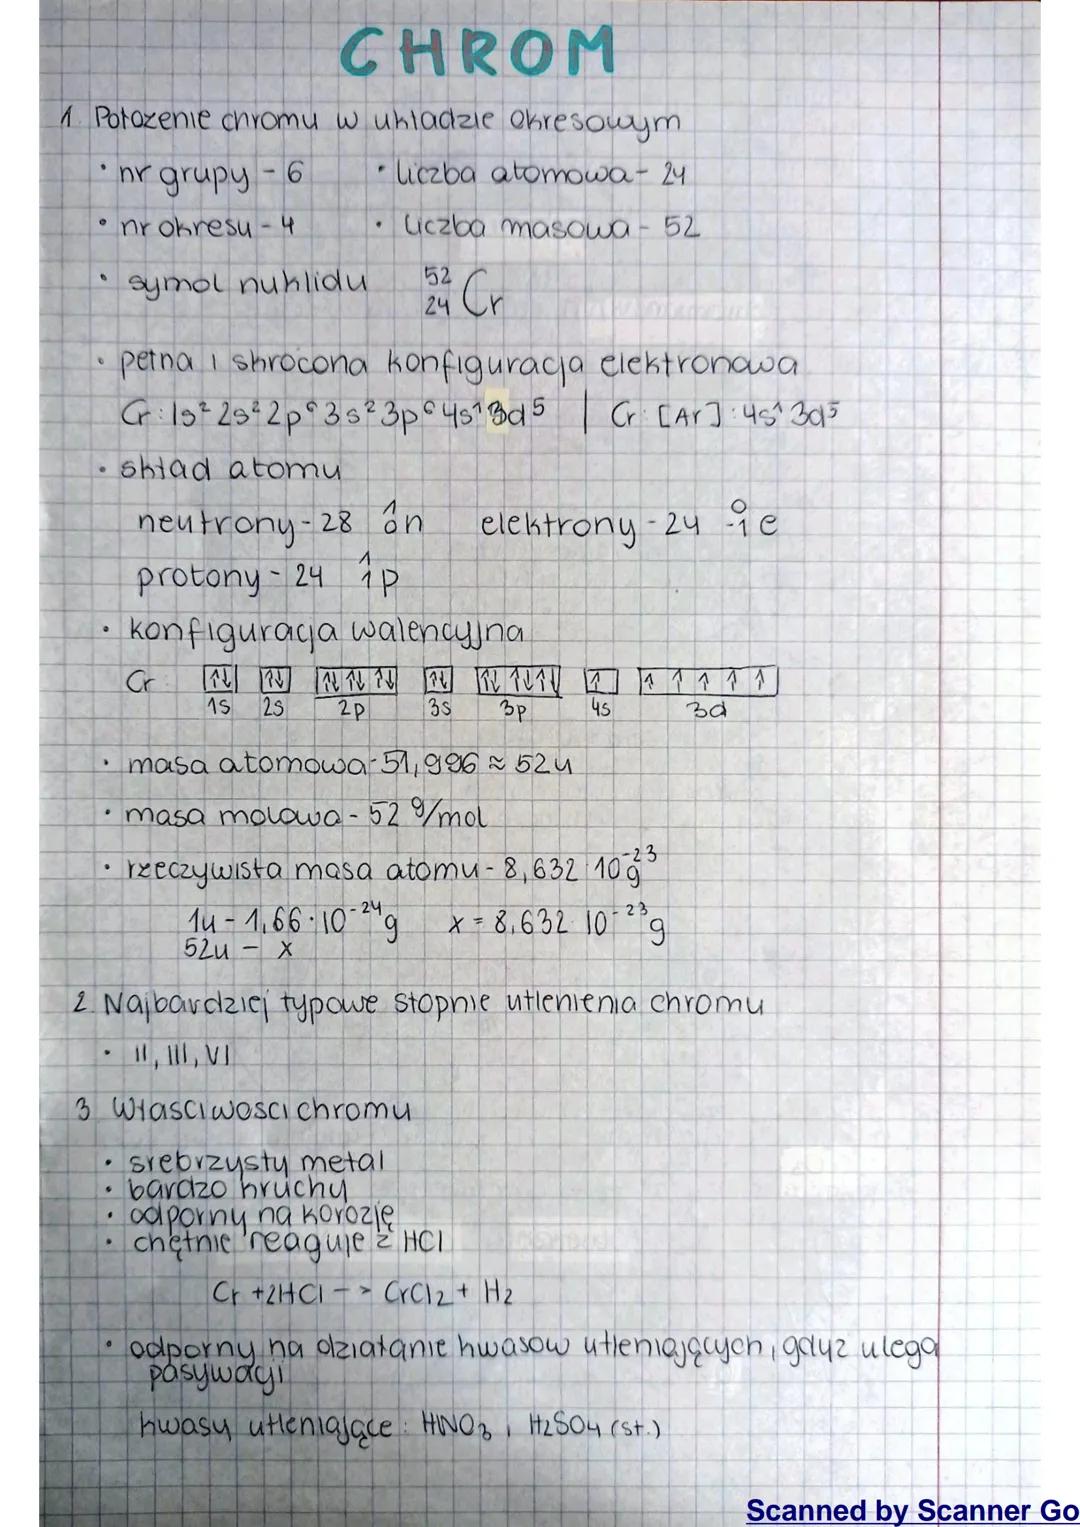 CHROM
1. Położenie chromu w układzie okresowym
• nr grupy - 6 • liczba atomowa - 24
• nr okresu - 4 • liczba masowa - 52
• symol nuklidu ⁵²₂₄Cr
• pełna i skrócona konfiguracja elektronowa
Cr: 1s² 2s² 2p⁶ 3s² 3p⁶ 4s¹ 3d⁵ | Cr: [Ar]: 4s¹ 3d⁵
• skład atomu
neutrony - 28 ¹₀n elektrony - 24 ⁰₋₁e
protony - 24 ¹₁p
• konfiguracja walencyjna
Cr ↑↓ ↑↓ ↑↓ ↑↓ ↑↓ ↑↓ ↑↓ ↑↓ ↑↓ ↑ ↑ ↑ ↑ ↑ ↑
1s 2s 2p 3s 3p 4s 3d
• masa atomowa - 51,996 ≈ 52u
• masa molowa - 52 g/mol
• rzeczywista masa atomu - 8,632 · 10⁻²³g
1u - 1,66 · 10⁻²⁴g x = 8,632 · 10⁻²³g
52u - x
2. Najbardziej typowe stopnie utlenienia chromu
• II, III, VI
3. Właściwości chromu
• srebrzysty metal
• bardzo kruchy
• odporny na korozję
• chętnie reaguje z HCl
Cr + 2HCl -> CrCl₂ + H₂
• odporny na działanie kwasów utleniających, gdyż ulega
pasywacji
kwasy utleniające: HNO₃, H₂SO₄ (st.)
Scanned by Scanner Go